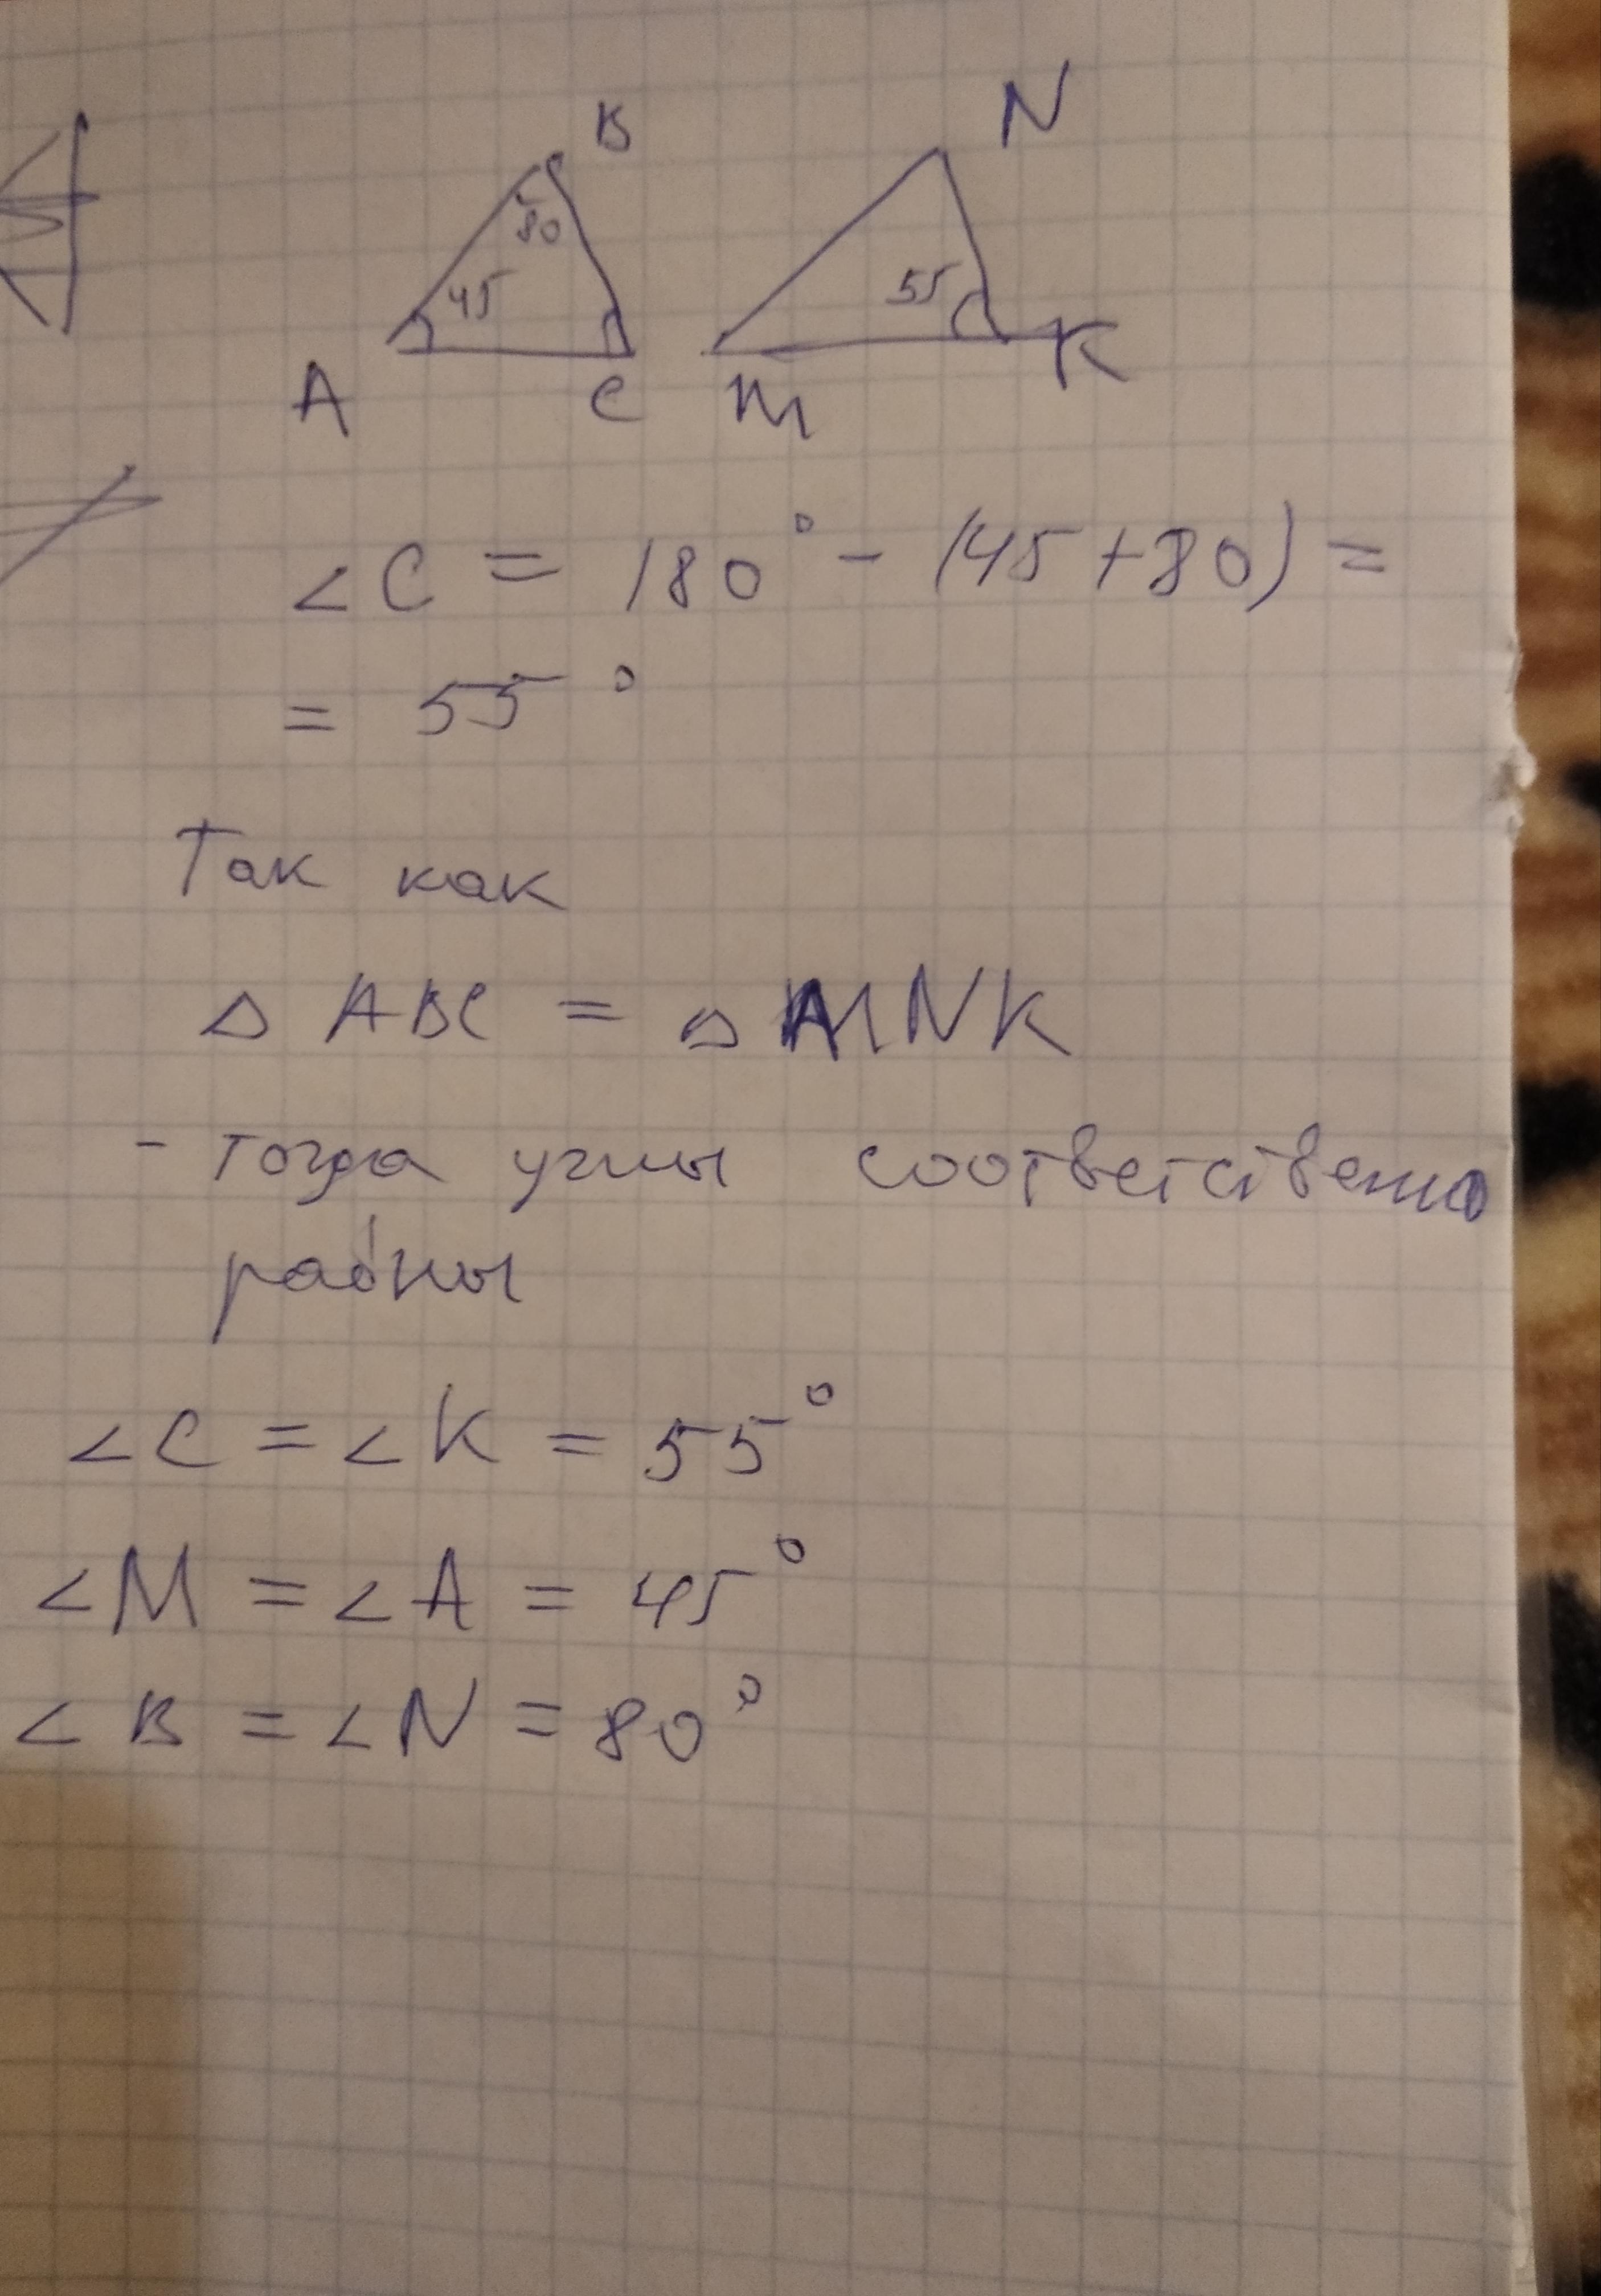 B N
80
45 55
A C M K
∠C = 180° - (45+80) =
= 55°
Так как
△ ABC = △ MNK
- тогда углы соответственно
равны
∠C = ∠K = 55°
∠M = ∠A = 45°
∠B = ∠N = 80°